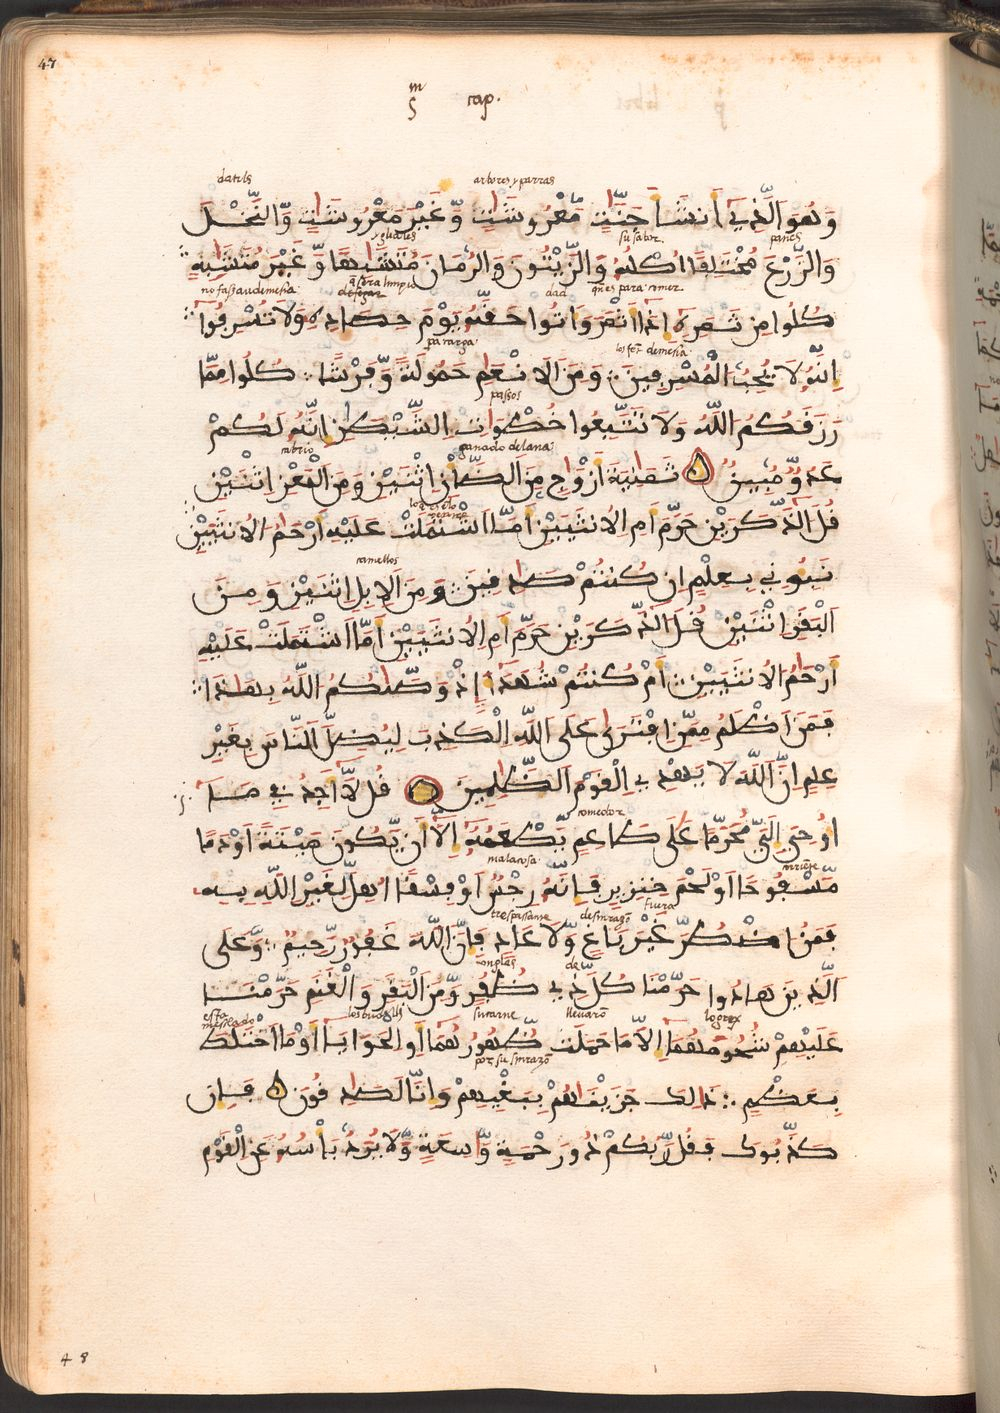 47
m
5 cap.
datils arbores y parras
وَهُوَ الَّذِي أَنشَأَ جَنَّٰتٍ مَّعْرُوشَٰتٍ وَّغَيْرَ مَعْرُوشَٰتٍ وَّالنَّخْلَ
yguales su sabor panes
وَالزَّرْعَ مُخْتَلِفًا اُكْلُهُ وَالزَّيْتُونَ وَالرُّمَّانَ مُتَشَٰبِهًا وَّغَيْرَ مُتَشَٰبِهٍ
no fastaudemesia de segar dad qñ es para comer
كُلُوا مِن ثَمَرِهِ إِذَا أَثْمَرَ وَاتُوا حَقَّهُ يَوْمَ حِصَادِهِ وَلَا تُسْرِفُوا
para carga los fez demesia
إِنَّهُ لَا يُحِبُّ الْمُسْرِفِينَ وَمِنَ الْأَنْعَٰمِ حَمُولَةً وَّفَرْشًا كُلُوا مِمَّا
passos
رَزَقَكُمُ اللَّهُ وَلَا تَتَّبِعُوا خُطْوَاتِ الشَّيْطَٰنِ إِنَّهُ لَكُمْ
cabrio ganado de lana
عَدُوٌّ مُّبِينٌ ثَمَٰنِيَةَ أَزْوَاجٍ مِّنَ الضَّأْنِ اثْنَيْنِ وَمِنَ الْمَعْزِ اثْنَيْنِ
قُلَ الذَّكَرَيْنِ حَرَّمَ أَمِ الْأُنثَيَيْنِ أَمَّا اشْتَمَلَتْ عَلَيْهِ أَرْحَامُ الْأُنثَيَيْنِ
camellos
نَبِّئُونِي بِعِلْمٍ إِن كُنتُمْ صَٰدِقِينَ وَمِنَ الْإِبِلِ اثْنَيْنِ وَمِنَ
الْبَقَرِ اثْنَيْنِ قُلَ الذَّكَرَيْنِ حَرَّمَ أَمِ الْأُنثَيَيْنِ أَمَّا اشْتَمَلَتْ عَلَيْهِ
أَرْحَامُ الْأُنثَيَيْنِ أَمْ كُنتُمْ شُهَدَاءَ إِذْ وَصَّٰكُمُ اللَّهُ بِهَٰذَا
فَمَنَ أَظْلَمُ مِمَّنِ افْتَرَىٰ عَلَى اللَّهِ الْكَذِبَ لِيُضِلَّ النَّاسَ بِغَيْرِ
عِلْمٍ إِنَّ اللَّهَ لَا يَهْدِي الْقَوْمَ الظَّٰلِمِينَ قُل لَّا أَجِدُ فِي مَا
comedor
أُوحِيَ إِلَيَّ مُحَرَّمًا عَلَىٰ طَاعِمٍ يَّطْعَمُهُ إِلَّا أَن يَّكُونَ مَيْتَةً أَوْ دَمًا
mala cosa corriẽte
مَّسْفُوحًا أَوْ لَحْمَ خِنزِيرٍ فَإِنَّهُ رِجْسٌ أَوْ فِسْقًا أُهِلَّ لِغَيْرِ اللَّهِ بِهِ
trespassante desinrazõ fuera
فَمَنُ اضْطُرَّ غَيْرَ بَاغٍ وَّلَا عَادٍ فَإِنَّ اللَّهَ غَفُورٌ رَّحِيمٌ وَعَلَى
de
الَّذِينَ هَادُوا حَرَّمْنَا كُلَّ ذِي ظُفُرٍ وَّمِنَ الْبَقَرِ وَالْغَنَمِ حَرَّمْنَا
esto mesclado su carne llevarõ
عَلَيْهِمْ شُحُومَهُمَا إِلَّا مَا حَمَلَت ظُّهُورُهُمَا أَوِ الْحَوَايَا أَوْ مَا اخْتَلَطَ
por su sinrazõ
بِعَظْمٍ ذَٰلِكَ جَزَيْنَٰهُم بِبَغْيِهِمْ وَإِنَّا لَصَٰدِقُونَ فَإِن
كَذَّبُوكَ فَقُل رَّبُّكُمْ ذُو رَحْمَةٍ وَّاسِعَةٍ وَّلَا يُرَدُّ بَأْسُهُ عَنِ الْقَوْمِ
48